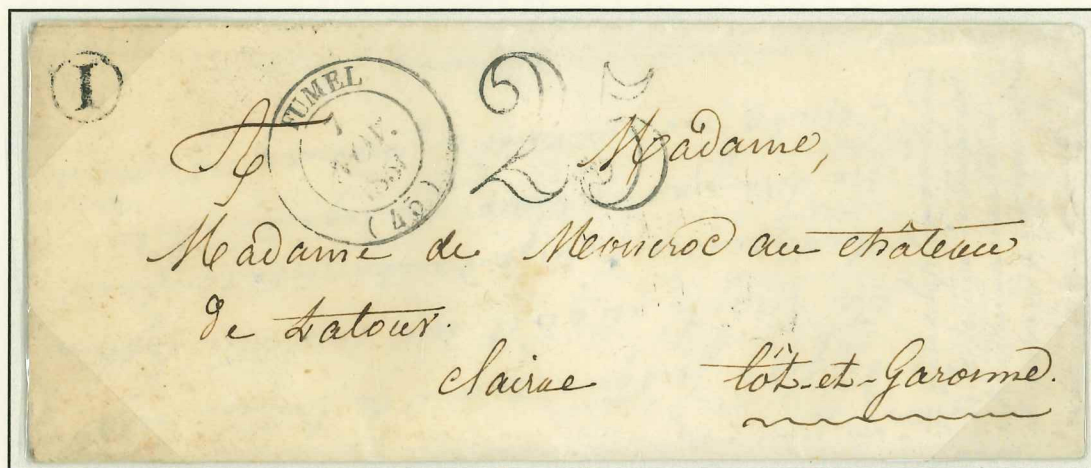 I
FUMEL
7
NOV.
(45)
25
A Madame,
Madame de Moncroc au château
de Latour.
Clairac Lôt-et-Garonne.